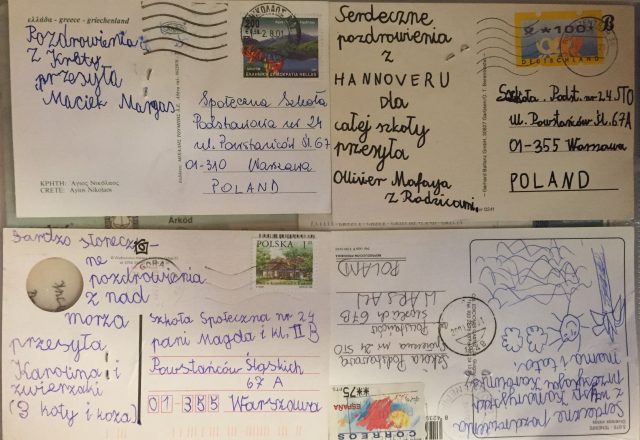 ελλάδα - greece - griechenland
Pozdrowienia
z Krety
przesyła
Maciek Margas
ΚΡΗΤΗ: Άγιος Νικόλαος
CRETE: Agios Nikolaos
200
ΕΛΛΗΝΙΚΗ ΔΗΜΟΚΡΑΤΙΑ HELLAS
Społeczna Szkoła
Podstawowa nr 24
ul. Powstańców Śl. 67
01-310 Warszawa
POLAND
Serdeczne
pozdrowienia
z
HANNOVERU
dla
całej szkoły
przesyła
Ollivier Mafaya
z Rodzicami
100
DEUTSCHLAND
B
Szkoła Podst. nr 24 STO
ul. Powstańców Śl. 67A
01-355 Warszawa
POLAND
Arkód
Bardzo słonecz-
ne
pozdrowienia
z nad
morza
przesyła
Karolina i
zwierzaki
(3 koty i koza)
GÓRA
POLSKA
Szkoła Społeczna nr 24
pani Magda i kl. II B
Powstańców Śląskich
67 A
01-355 Warszawa
GRECE GREECE
Szkoła Podstawowa
Społeczna nr 24 STO
Powstańców
Śląskich 67B
WARSAW
POLAND
**75
ESPAÑA
CORREOS
Serdeczne pozdrowienia
z wysp Kanaryjskich
przesyła Karolinka
mama i tata!